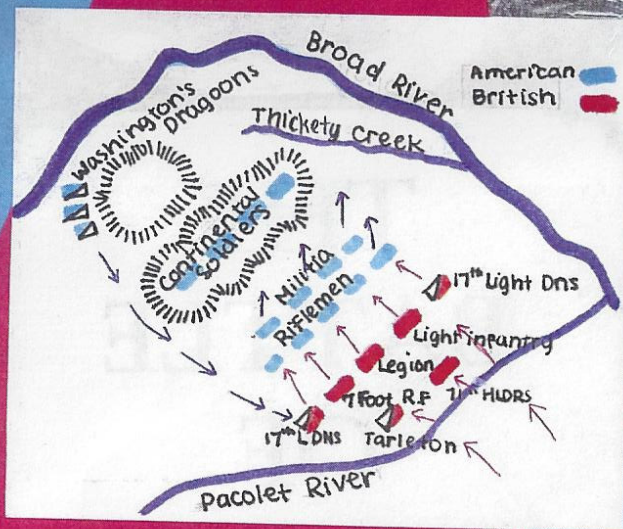 Broad River
American
British
Washington's
Dragoons
Thickety Creek
Continental
Soldiers
Militia
Riflemen
17th Light Dns
Light infantry
Legion
7 Foot R.F
71th HLDRS
17th L DNS
Tarleton
Pacolet River